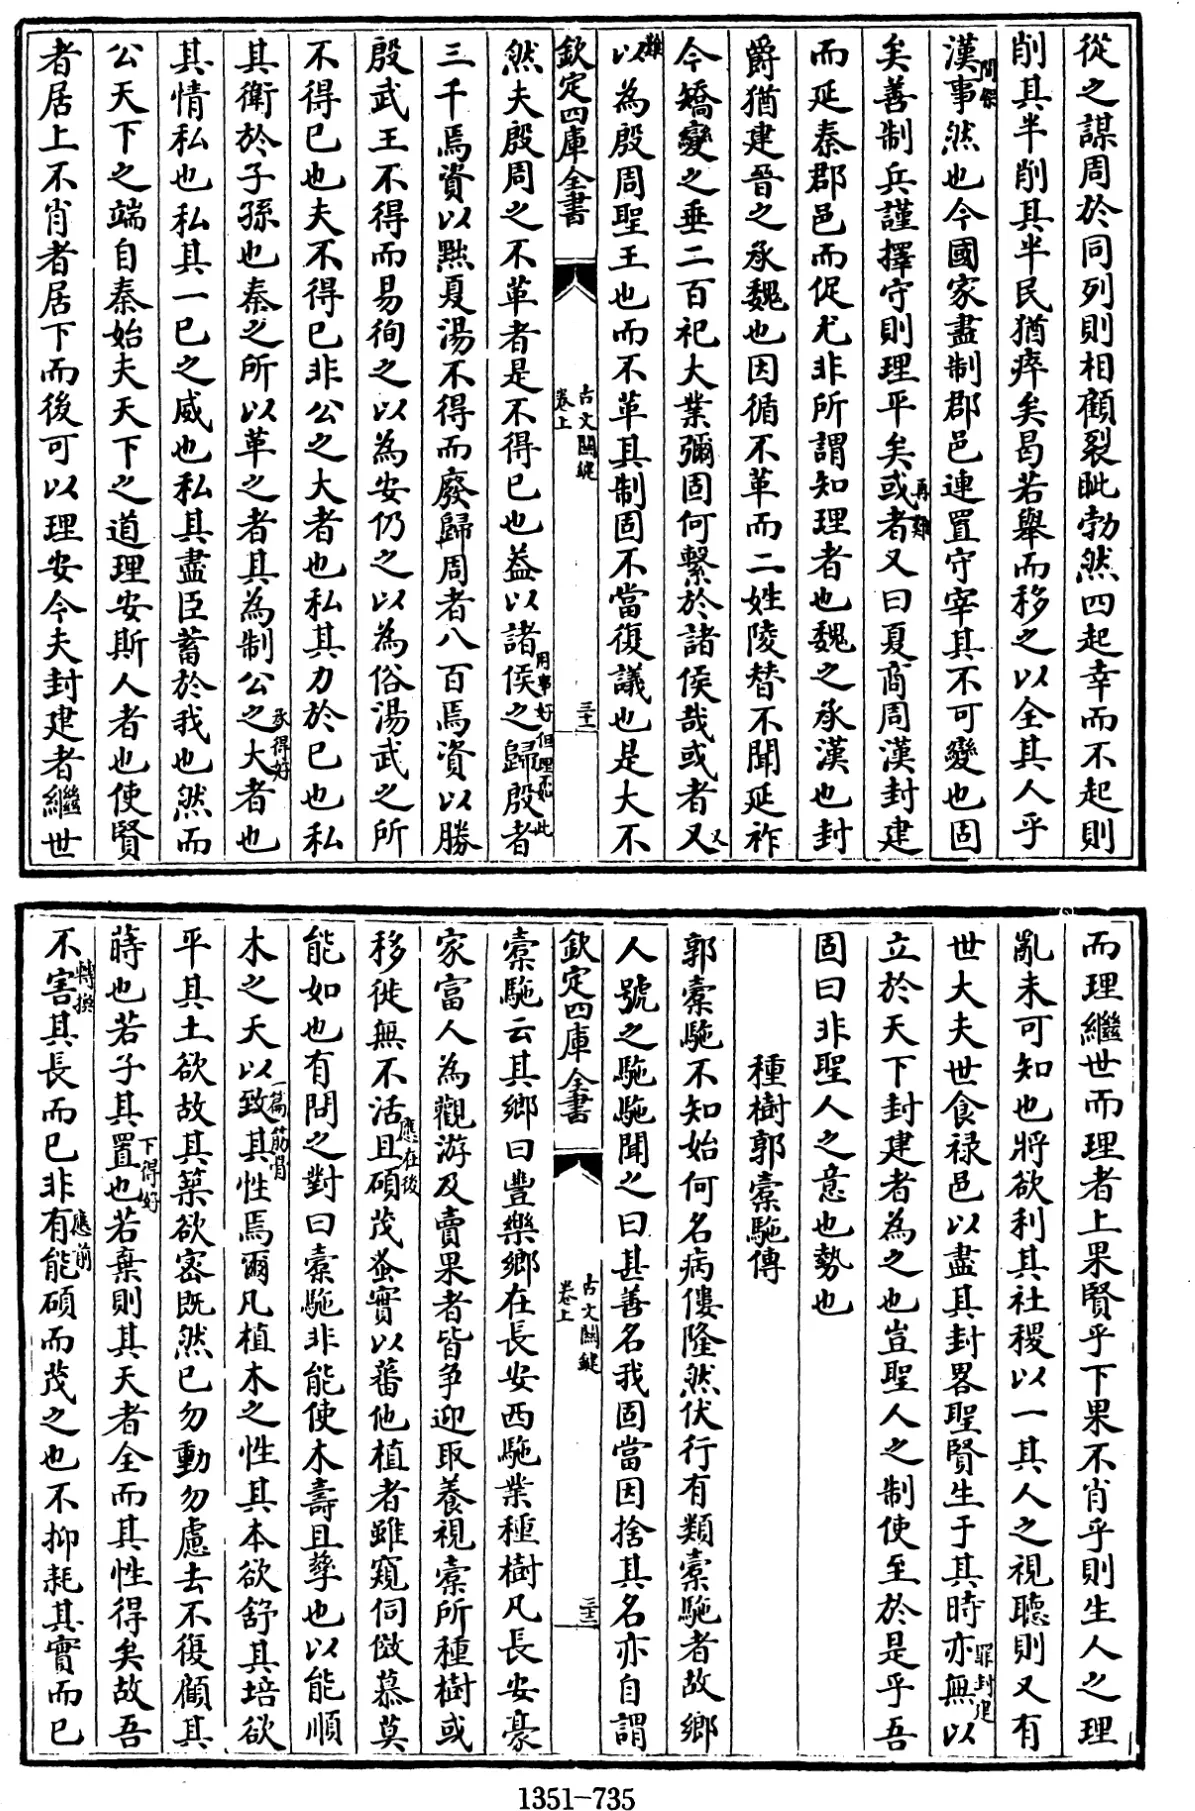 從之謀周於同列則相顧裂眦勃然四起幸而不起則
削其半削其半民猶瘁矣曷若舉而移之以全其人乎
間架
漢事然也今國家盡制郡邑連置守宰其不可變也固
再難
矣善制兵謹擇守則理平矣或者又曰夏商周漢封建
而延秦郡邑而促尤非所謂知理者也魏之承漢也封
爵猶建晉之承魏也因循不革而二姓陵替不聞延祚
今矯變之垂二百祀大業彌固何繫於諸侯哉或者又
又難
以為殷周聖王也而不革其制固不當復議也是大不
欽定四庫全書
古文關鍵
卷上
三十一
然夫殷周之不革者是不得已也葢以諸侯之歸殷者
用事好但理不如此
三千焉資以黜夏湯不得而廢歸周者八百焉資以勝
殷武王不得而易徇之以為安仍之以為俗湯武之所
不得已也夫不得已非公之大者也私其力於已也私
其衛於子孫也秦之所以革之者其為制公之大者也
承得好
其情私也私其一已之威也私其盡臣蓄於我也然而
公天下之端自秦始夫天下之道理安斯人者也使賢
者居上不肖者居下而後可以理安今夫封建者繼世
而理繼世而理者上果賢乎下果不肖乎則生人之理
亂未可知也將欲利其社稷以一其人之視聽則又有
世大夫世食禄邑以盡其封畧聖賢生于其時亦無以
罪封建
立於天下封建者為之也豈聖人之制使至於是乎吾
固曰非聖人之意也勢也
種樹郭橐駞傳
郭橐駞不知始何名病僂隆然伏行有類橐駞者故鄉
人號之駞駞聞之曰甚善名我固當因捨其名亦自謂
欽定四庫全書
古文關鍵
卷上
三十二
橐駞云其鄉曰豐樂鄉在長安西駞業種樹凡長安豪
家富人為觀游及賣果者皆争迎取養視橐所種樹或
移徙無不活且碩茂蚤實以蕃他植者雖窺伺傚慕莫
應在後
能如也有問之對曰橐駞非能使木壽且孳也以能順
木之天以致其性焉爾凡植木之性其本欲舒其培欲
一篇筋骨
平其土欲故其築欲宻既然已勿動勿慮去不復顧其
蒔也若子其置也若棄則其天者全而其性得矣故吾
下得好
不害其長而已非有能碩而茂之也不抑耗其實而已
轉換
應前
1351-735